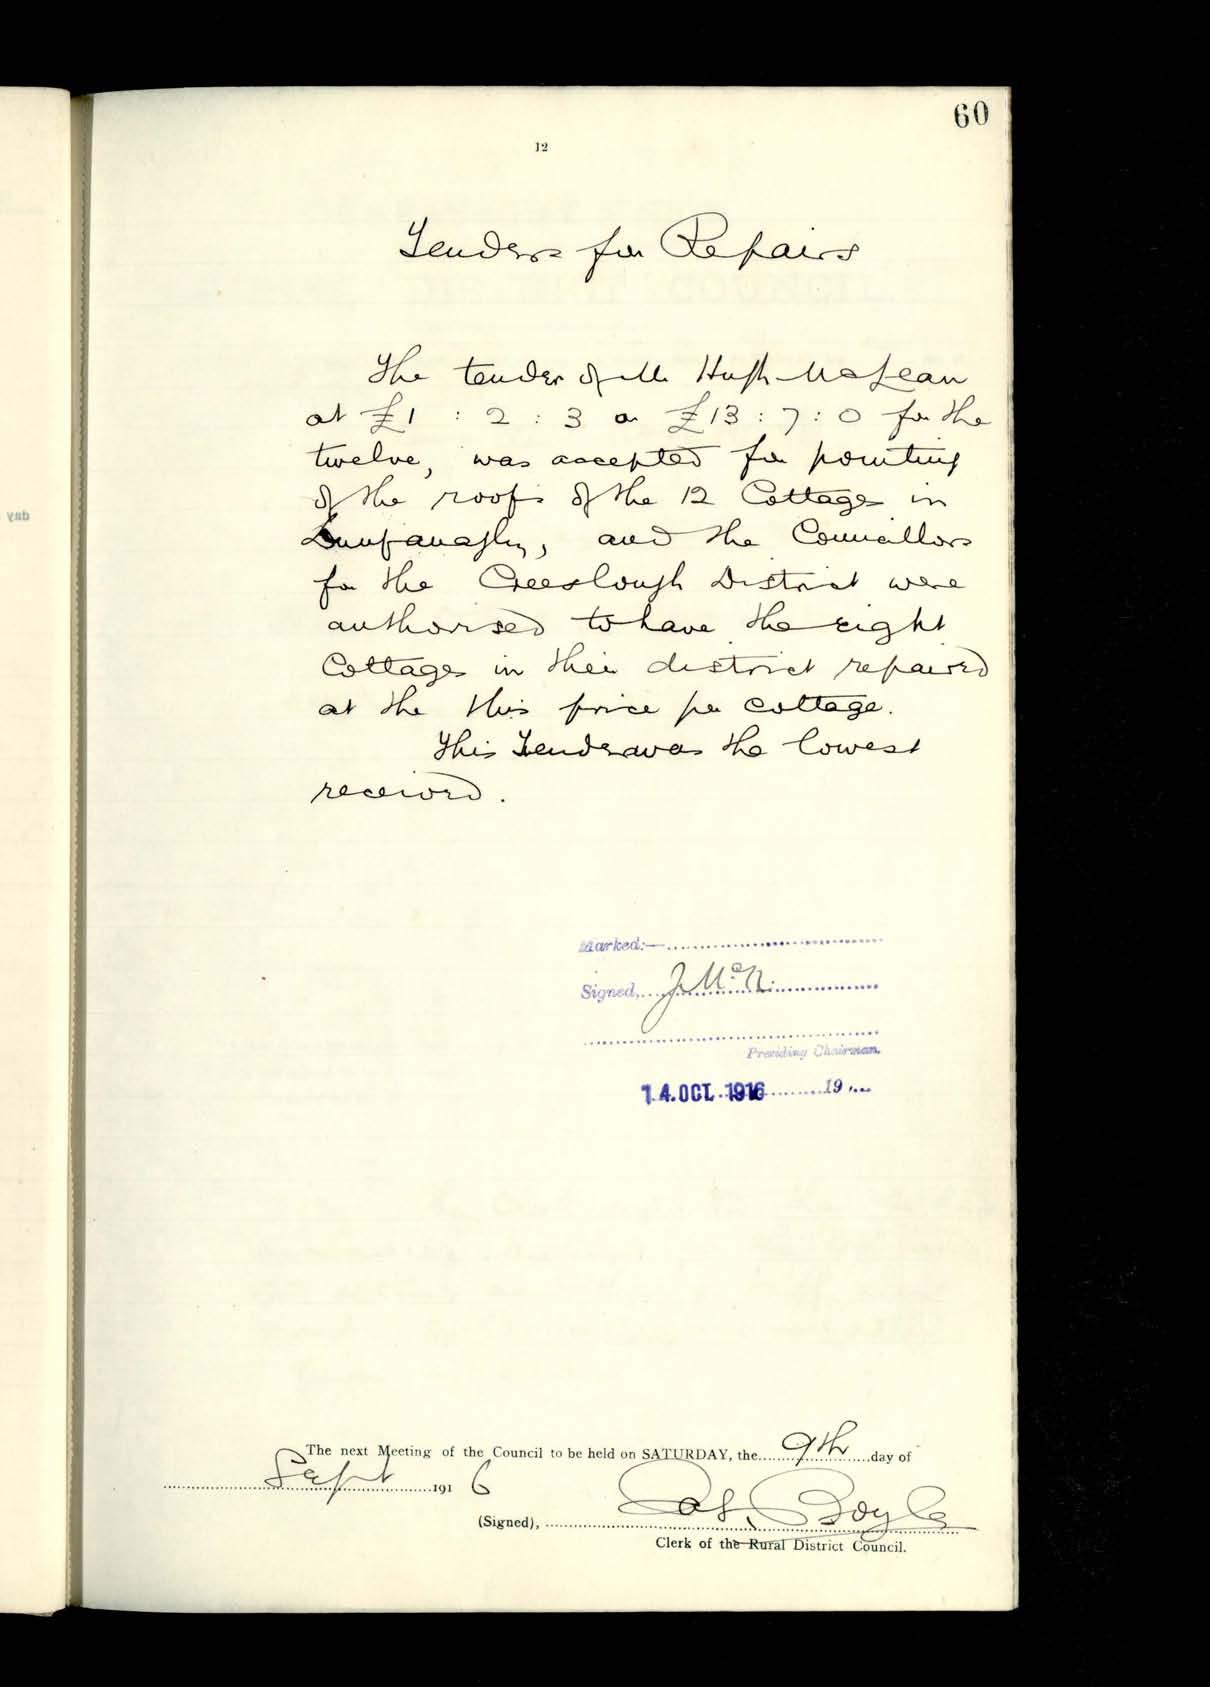 60
12
Tenders for Repairs
The tender of Mr Hugh McLean
at £1 : 2 : 3 or £13 : 7 : 0 for the
twelve, was accepted for pointing
of the roofs of the 12 Cottages in
Dunfanaghy, and the Councillors
for the Creeslough District were
authorised to have the eight
Cottages in their district repaired
at the this price per cottage.
This Tender was the lowest
received.
Marked:—
Signed, J McN.
Presiding Chairman.
14. OCT. 1916 19
The next Meeting of the Council to be held on SATURDAY, the 9th day of
Sept 1916
(Signed), Jas. Boyle
Clerk of the Rural District Council.
day